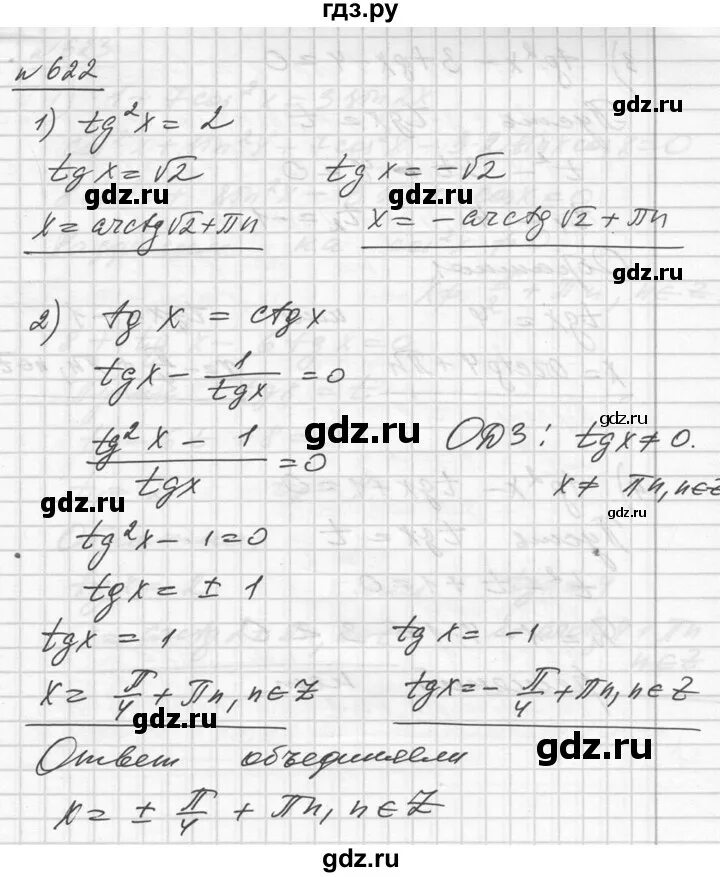 гдз.ру
№622
1) tg²x = 2
tgx = √2    tgx = -√2
gdz.ru gdz.ru
x = arctg√2 + πn    x = -arctg√2 + πn
gdz.ru
2) tg x = ctgx
tgx - 1/tgx = 0
gdz.ru
(tg²x - 1)/tgx = 0    ОДЗ: tgx ≠ 0.
gdz.ru gdz.ru
x ≠ πn, n∈Z
gdz.ru gdz.ru
tg²x - 1 = 0
tgx = ± 1
gdz.ru
tgx = 1    tgx = -1
x = π/4 + πn, n∈Z    tgx = -π/4 + πn, n∈Z
gdz.ru
Ответ объединяем
gdz.ru
x = ± π/4 + πn, n∈Z
gdz.ru
gdz.ru